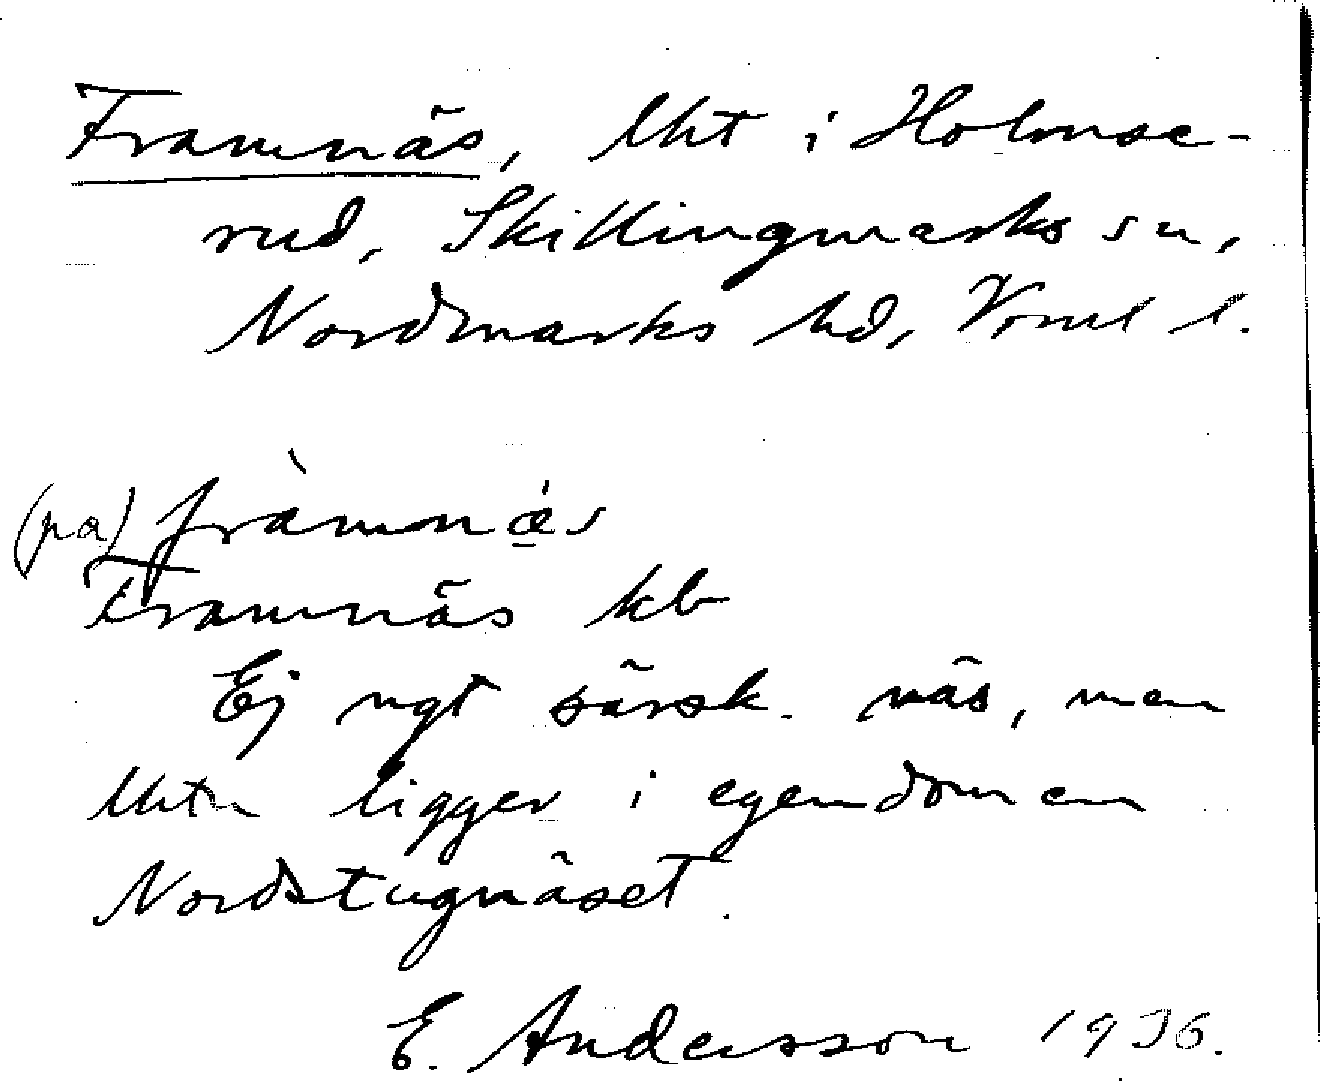 Framnäs, lht i Holmse-
rud, Skillingmarks sn,
Nordmarks hd, Vrml l.
(pa) fràmnæ̀s
Framnäs kb
Ej ngt särsk. näs, men
lhtn ligger i egendomen
Nordstugnäset.
E. Andersson 1936.